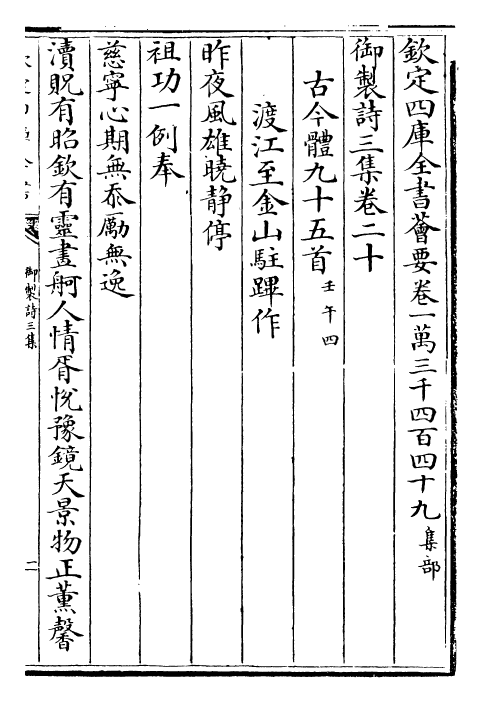 欽定四庫全書薈要卷一萬三千四百四十九 集部
御製詩三集卷二十
古今體九十五首 壬午四
渡江至金山駐蹕作
昨夜風雄曉静停
祖功一例奉
慈寧心期無忝勵無逸
瀆貺有昭欽有靈畫舸人情胥悅豫鏡天景物正薰馨
御製詩三集
二